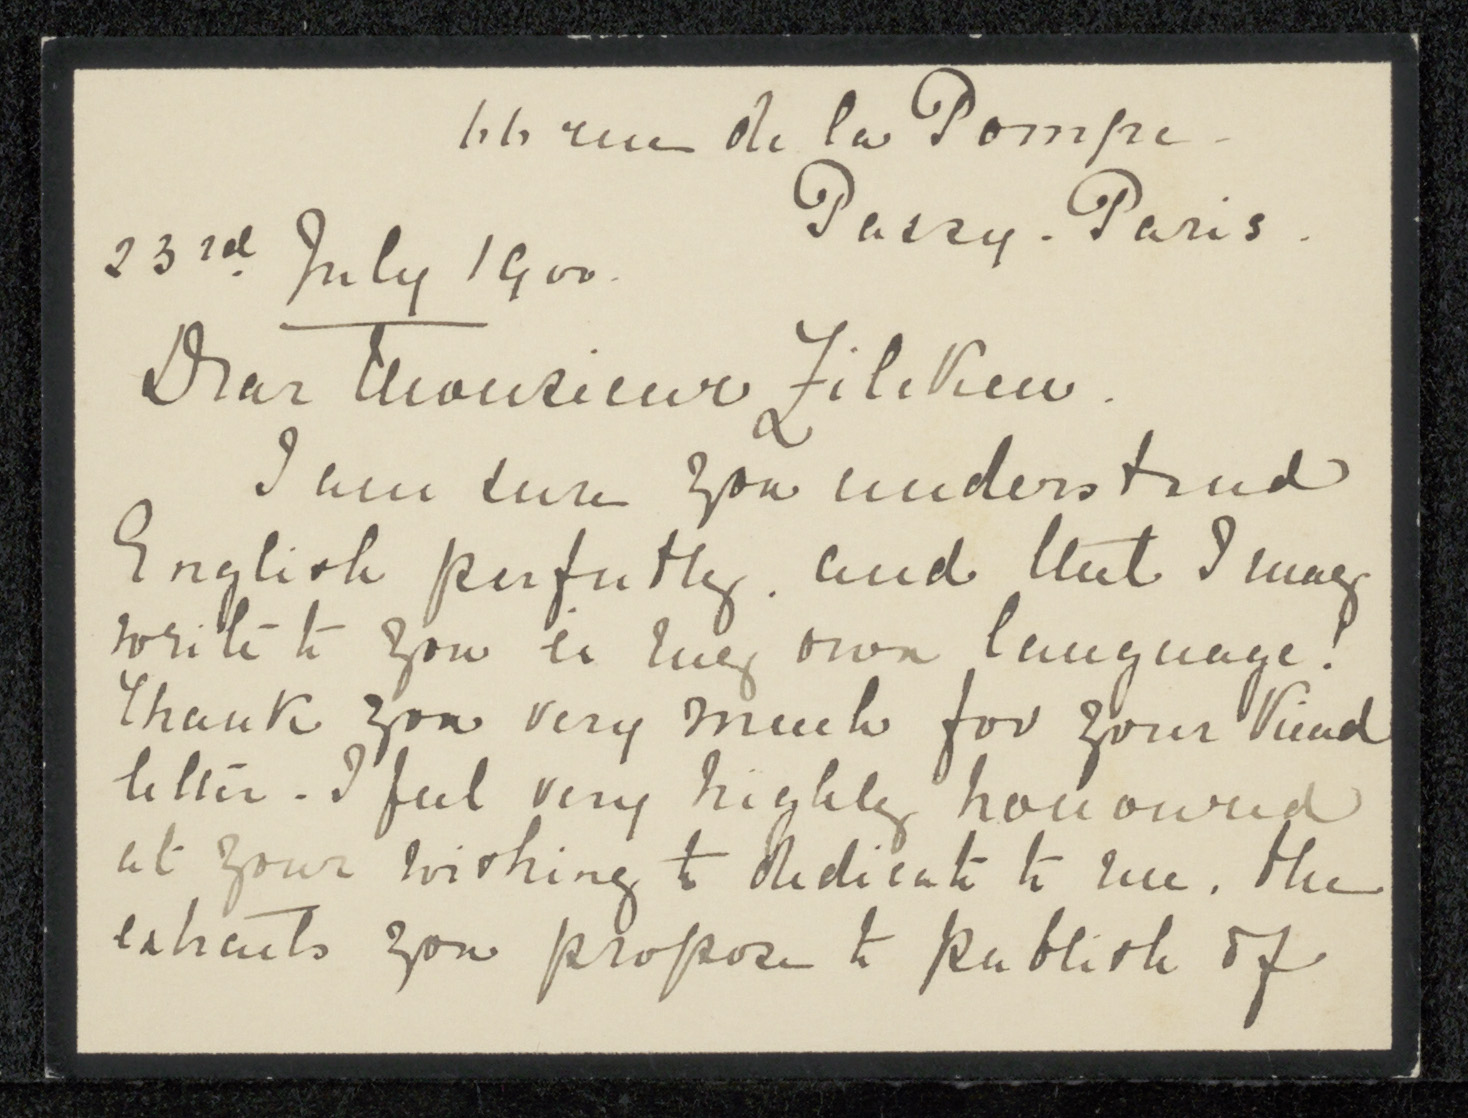 66 rue de la Pompe -
Passy. Paris.
23rd July 1900.
Dear Monsieur Zilcken.
I am sure you understand
English perfectly. and that I may
write to you in my own language!
Thank you very much for your kind
letter - I feel very highly honoured
at your wishing to dedicate to me. the
extracts you propose to publish of